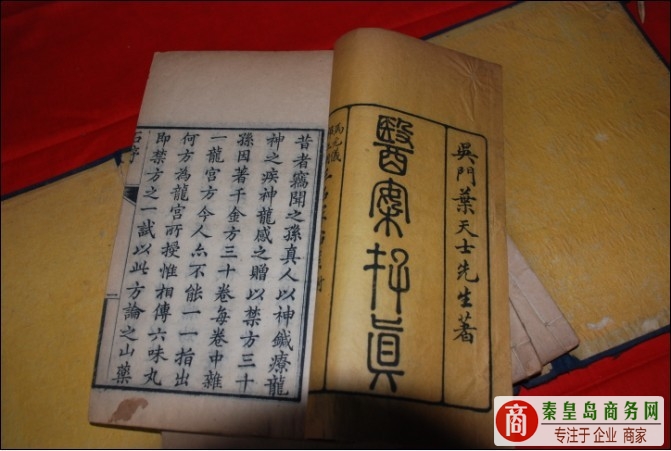 吳門葉天士先生著
醫案存真
馬元儀
昔者竊聞之孫真人以神鍼療龍
神之疾神龍感之贈以禁方三十
孫因著千金方三十卷每卷中雜
一龍宮方今人亦不能一一指出
何方為龍宮所授惟相傳六味丸
即禁方之一試以此方論之山藥
石序
一
商
秦皇岛商务网
专注于 企业 商家